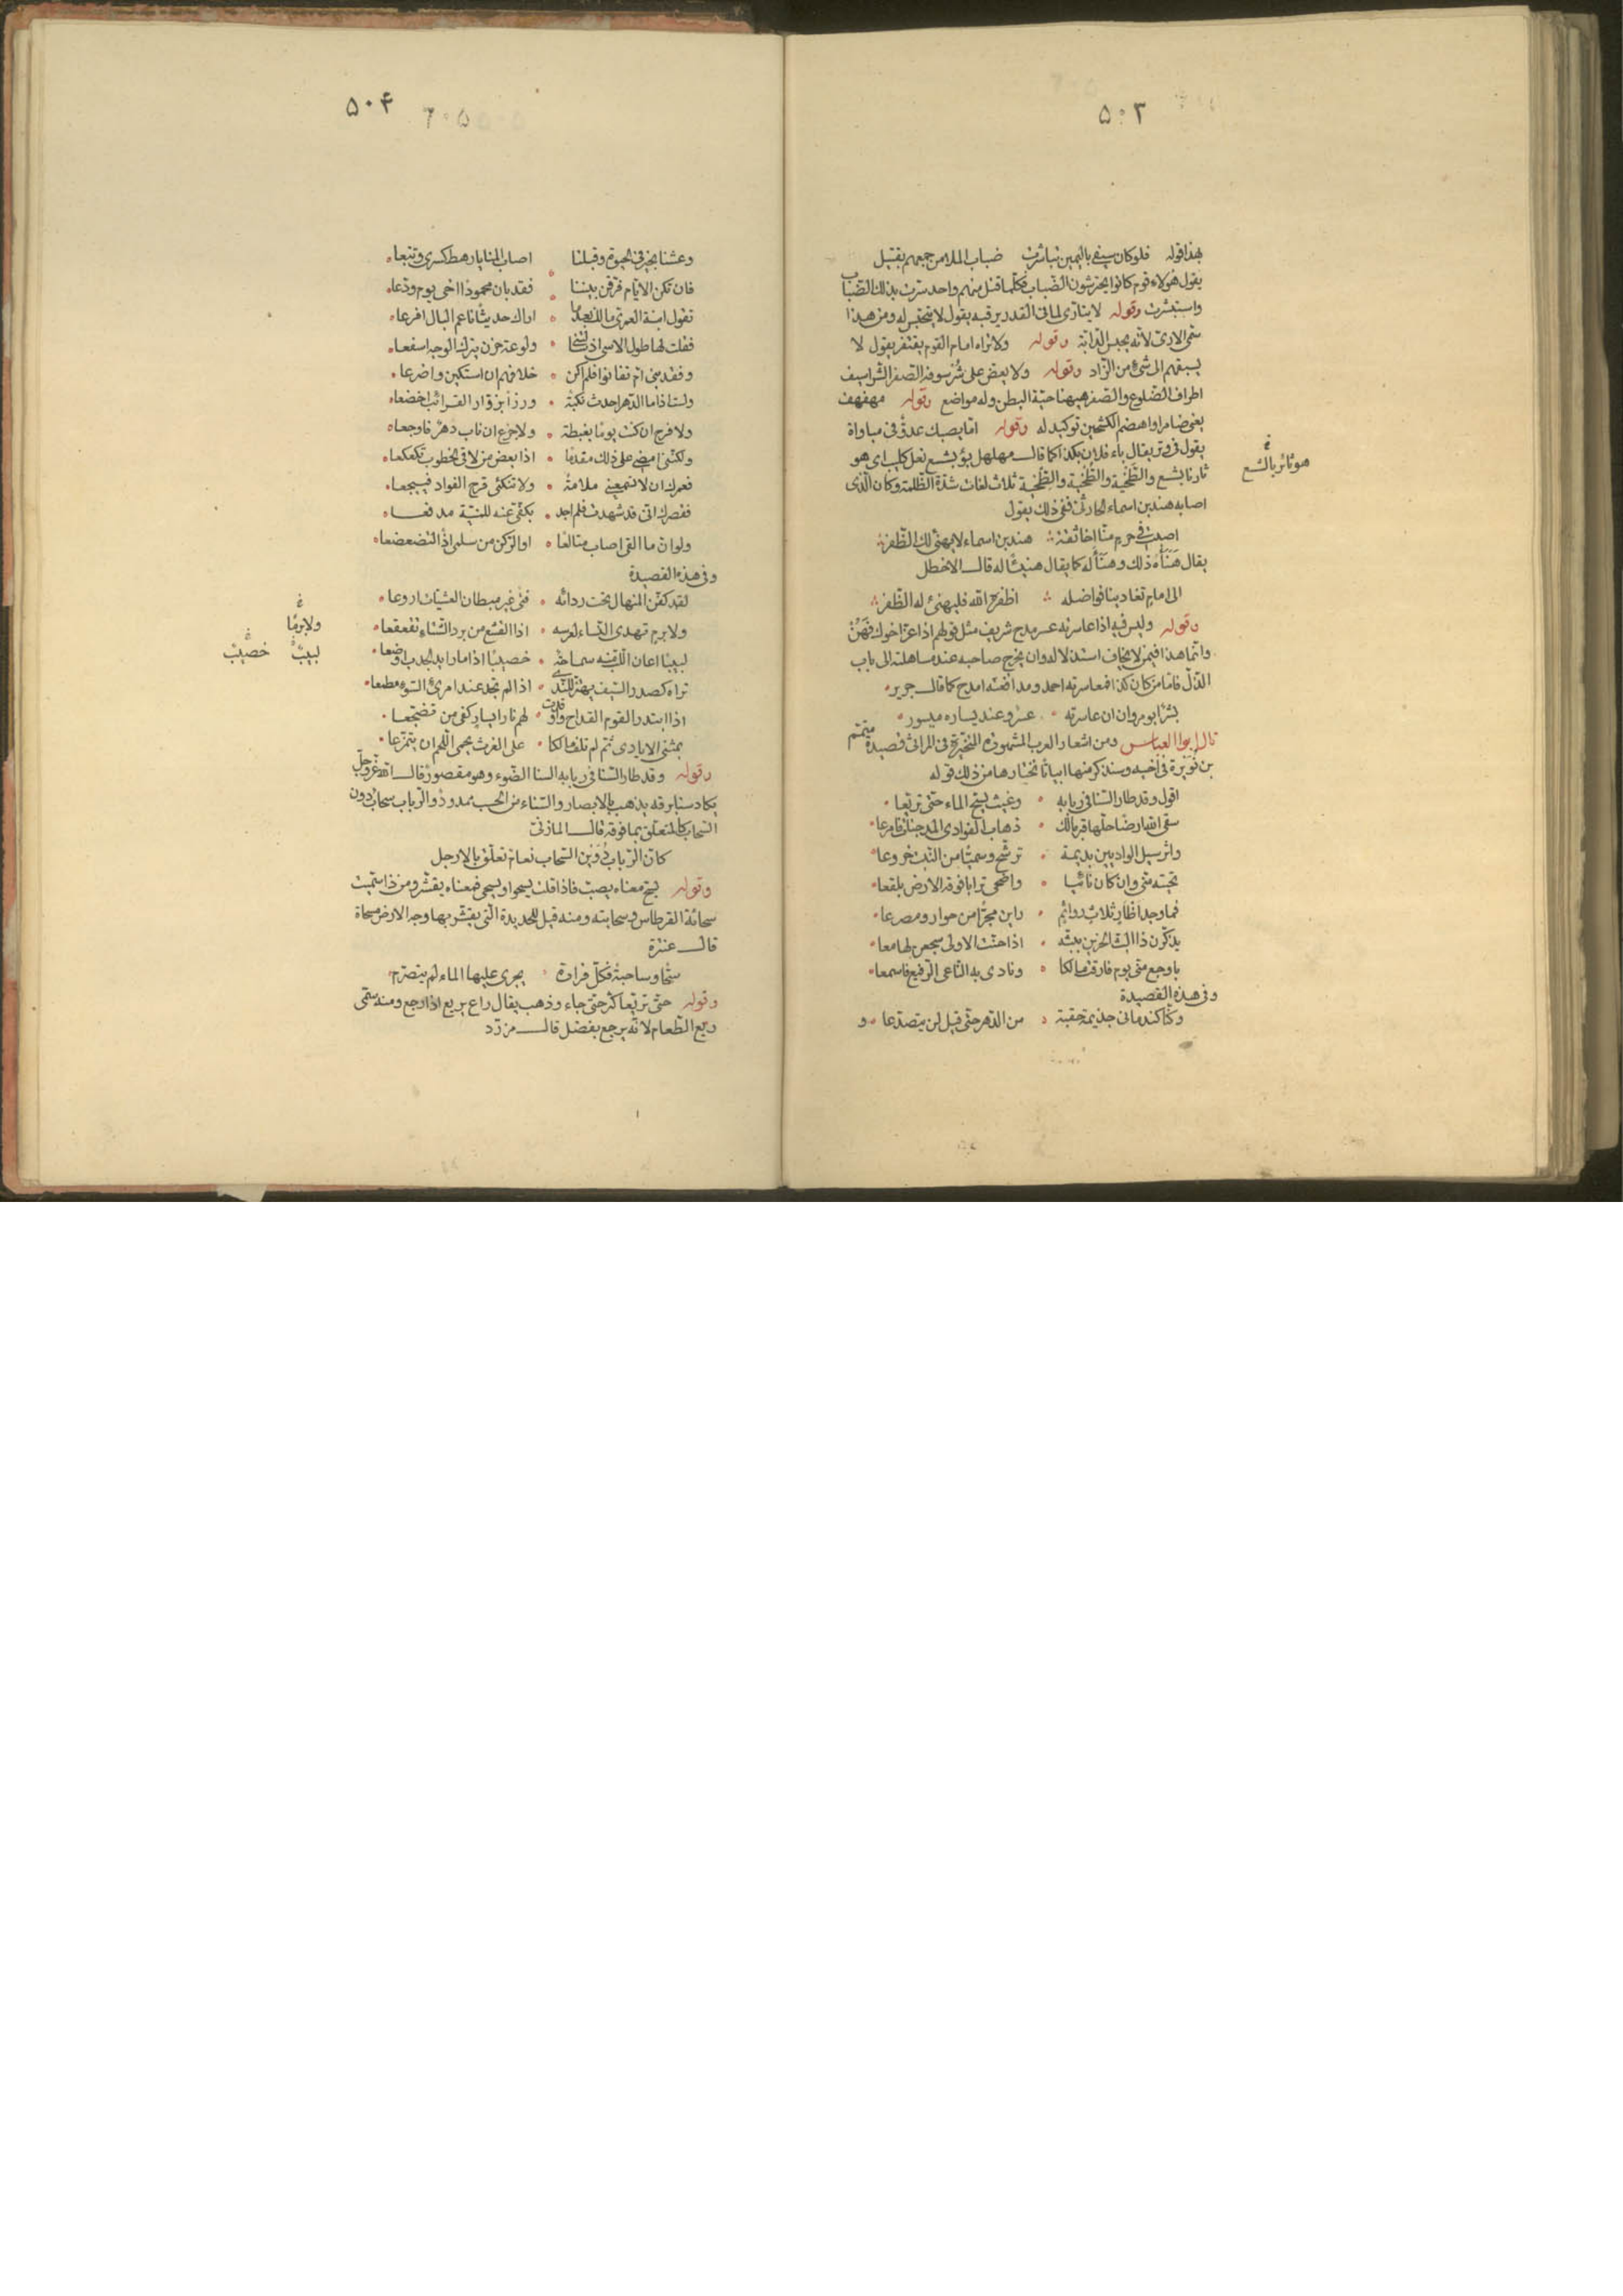 ۵۰۳
بهذا قوله فلو كان سيفي باليمين تباشرت ضباب الملا من جمعهم بقتيل
يقول هؤلاء قوم كانوا يحترشون الضباب فكلما قتل منهم واحد سرت بذلك الضباب
واستبشرت وقوله لا يتأرى لما في القدر يرقبه يقول لا يتحبس له ومن هذا
سمى الارى لانه يحبس الدابة وقوله ولا تراه امام القوم يقتفر يقول لا
يسبقهم الى شيء من الزاد وقوله ولا يعض على شرسوفه الصفر الشراسيف
اطراف الضلوع والصفر ههنا حية البطن وله مواضع وقوله مهفهف
يعني ضامرا واهضم الكشحين توكيد له وقوله اما يصبك عدو في مباواة
يقول في وتر يقال باء فلان بكذا كما قال مهلهل بؤ بشسع نعل كليب اى هو
ثارنا بشسع والطخية والطخية والطخية ثلاث لغات شدة الظلمة وكان الذى
غ هو ثائر بالشسع
اصابه هند بن اسماء الحارثى ففى ذلك يقول
اصبت في حرم منا اخا ثقة هند بن اسماء لا يهنئ لك الظفر
يقال هَنَأَهُ ذلك وهَنَأَ له كما يقال هنيئا له قال الاخطل
الى امام تغادينا فواضله اظفره الله فليهنئ له الظفر
وقوله وليس فيه اذا عاسرته عسر مدح شريف مثل قولهم اذا عز اخوك فَهُنْ
وانما هذا فيمن لا يخاف استذلاله وان يخرج صاحبه عند مساهلته الى باب
الذل فاما من كان كذا فمعاسرته احمد ومدافعته امدح كما قال جرير
بشر ابو مروان ان عاسرته عسر وعند يساره ميسور
قال ابو العباس ومن اشعار العرب المشهورة المتخيرة في المراثى قصيدة متمم
بن نُوَيْرَة في اخيه وسنذكر منها ابياتا نختارها من ذلك قوله
اقول وقد طار السنا في ربابه وغيث يسح الماء حتى تريعا
سقى الله ارضا حلها قبر مالك ذهاب الغوادى المدجنات فامرعا
واثر سيل الواديين بديمة ترشح وسميا من النبت خروعا
تحيته منى وان كان نائيا واضحى ترابا فوقه الارض بلقعا
فما وجد اظآر ثلاث روائم راين مجرا من حوار ومصرعا
يذكرن ذا البث الحزين ببثه اذا حنت الاولى سجعن لها معا
باوجع منى يوم فارقت مالكا ونادى به الناعى الرفيع فاسمعا
وفي هذه القصيدة
وكنا كندمانى جذيمة حقبة من الدهر حتى قيل لن يتصدعا و
۵۰۴ ٦٠٥
وعشنا بخير في الحيوة وقبلنا اصاب المنايا رهط كسرى وتبعا
فان تكن الايام فرقن بيننا فقد بان محمودا اخى يوم ودعا
تقول ابنة العمرى مالك بعدما اراك حديثا ناعم البال افرعا
فقلت لها طول الاسى اذ ولوعة حزن يترك الوجه اسفعا
وفقد بنى ام تفانوا فلم اكن خلافهم ان استكين واضرعا
ولست اذا ما الدهر احدث نكبة ورزأ بزوار القرائب اخضعا
ولا فرح ان كنت يوما بغبطة ولا جزع ان ناب دهر فاوجعا
ولكننى امضى على ذلك مقدما اذا بعض من لاقى الخطوب تكعكعا
فعمرك ان لا تسمعينى ملامة ولا تنكئى قرح الفواد فييجعا
فقصرك انى قد شهدت فلم اجد بكفى عنه للمنية مدفعا
ولو ان ما القى اصاب متالعا او الركن من سلمى اذا لتضعضعا
وفي هذه القصيدة
لقد كفن المنهال تحت ردائه فتى غير مبطان العشيات اروعا
ولا برم تهدى النساء لعرسه اذا القشع من برد الشتاء تقعقعا
غ ولا برمًا
لبيبا اعان اللب منه سماحة خصيبا اذا ما رايد الجدب اوضعا
غ لبيبٌ خصيبٌ
تراه كصدر السيف يهتز للندى اذا لم تجد عند امرئ السوء مطمعا
اذا ابتدر القوم القداح واوقدت لهم نار ايسار كفى من تضجعا
بمثنى الايادى ثم لم تلف مالكا على الفرث يحمى اللحم ان يتمزعا
وقوله وقد طار السنا في ربابه السنا الضوء وهو مقصور قال الله عز وجل
يكاد سنا برقه يذهب بالابصار والسناء من الحسب ممدود والرباب سحاب دون
السحاب كالمتعلق بما فوقه قال المازنى
كان الرباب دُوَيْن السحاب نعام تعلق بالارجل
وقوله يسح معناه يصب فاذا قلت يسحو او يسحى فمعناه يقشر ومن ذا سميت
سحائة القرطاس وسحايته ومنه قيل للحديدة التى يقشر بها وجه الارض مسحاة
قال عنترة
سحا وساحية فكل قرارة يجرى عليها الماء لم يتصرم
وقوله حتى تريعا كثر حتى جاء وذهب يقال راع يريع اذا رجع ومنه سمى
ريع الطعام لانه يرجع بفضل قال مزرد